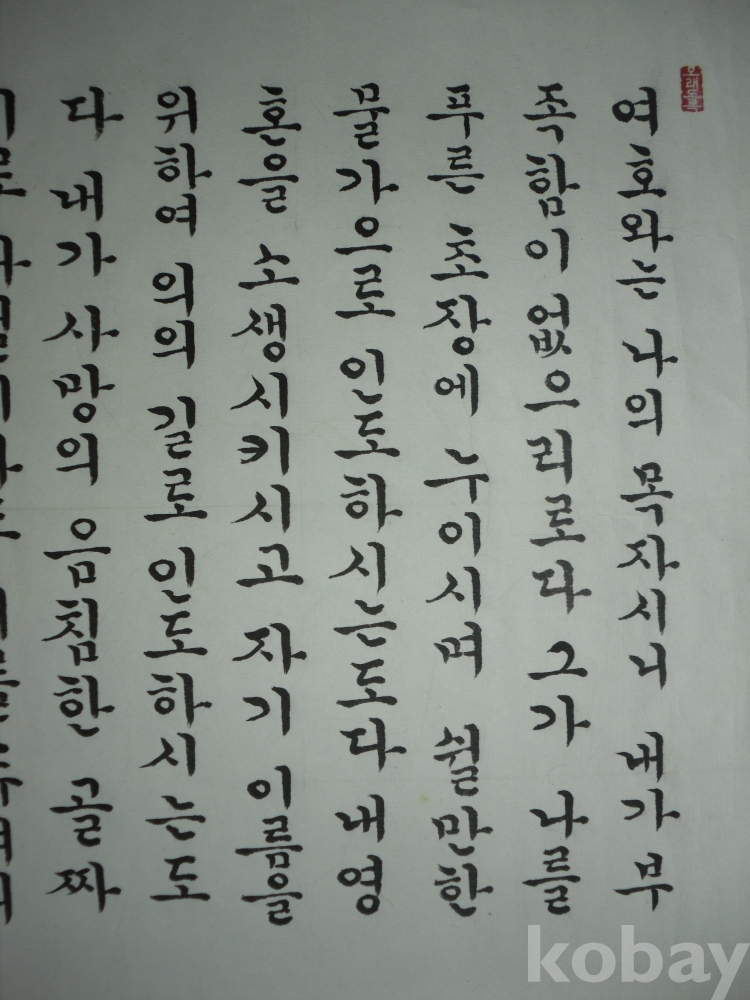 오래도록
여호와는 나의 목자시니 내가 부
족함이 없으리로다 그가 나를
푸른 초장에 누이시며 쉴만한
물가으로 인도하시는도다 내 영
혼을 소생시키시고 자기 이름을
위하여 의의 길로 인도하시는도
다 내가 사망의 음침한 골짜
kobay